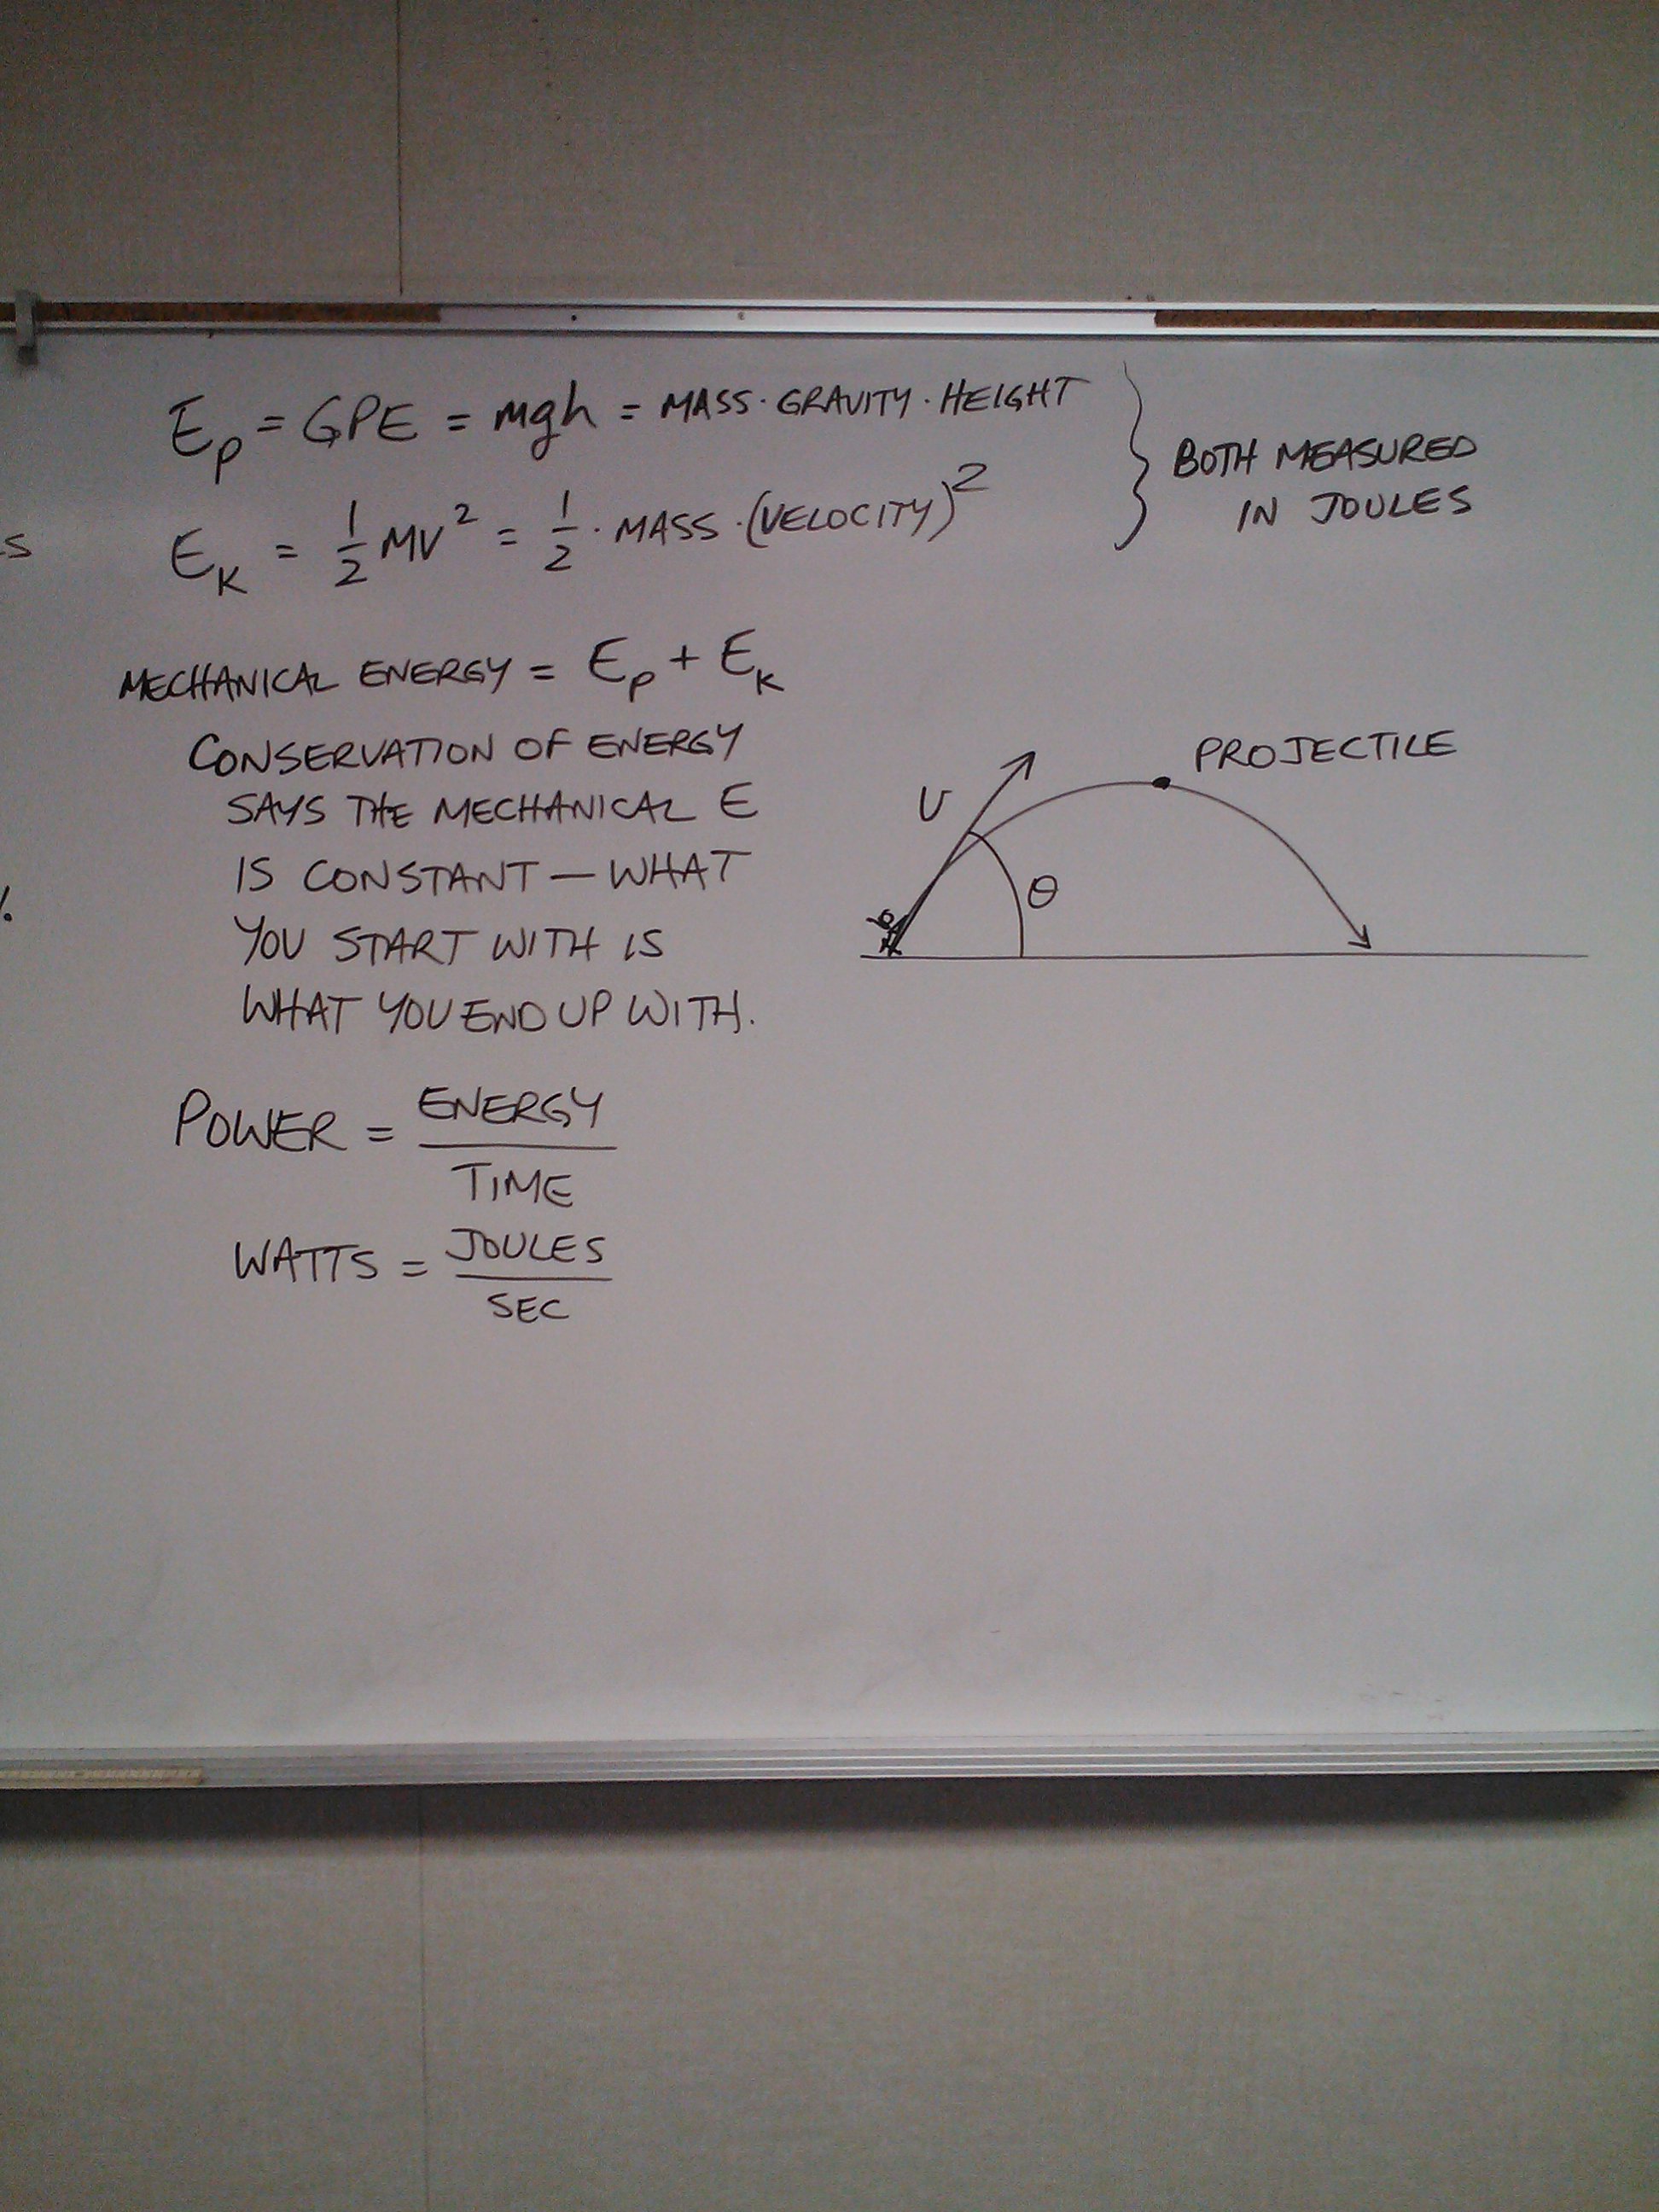 E_P = GPE = mgh = MASS · GRAVITY · HEIGHT
E_K = 1/2 MV² = 1/2 · MASS · (VELOCITY)²
BOTH MEASURED
IN JOULES
MECHANICAL ENERGY = E_P + E_K
CONSERVATION OF ENERGY
SAYS THE MECHANICAL E
IS CONSTANT — WHAT
YOU START WITH IS
WHAT YOU END UP WITH.
POWER = ENERGY / TIME
WATTS = JOULES / SEC
PROJECTILE
V
θ